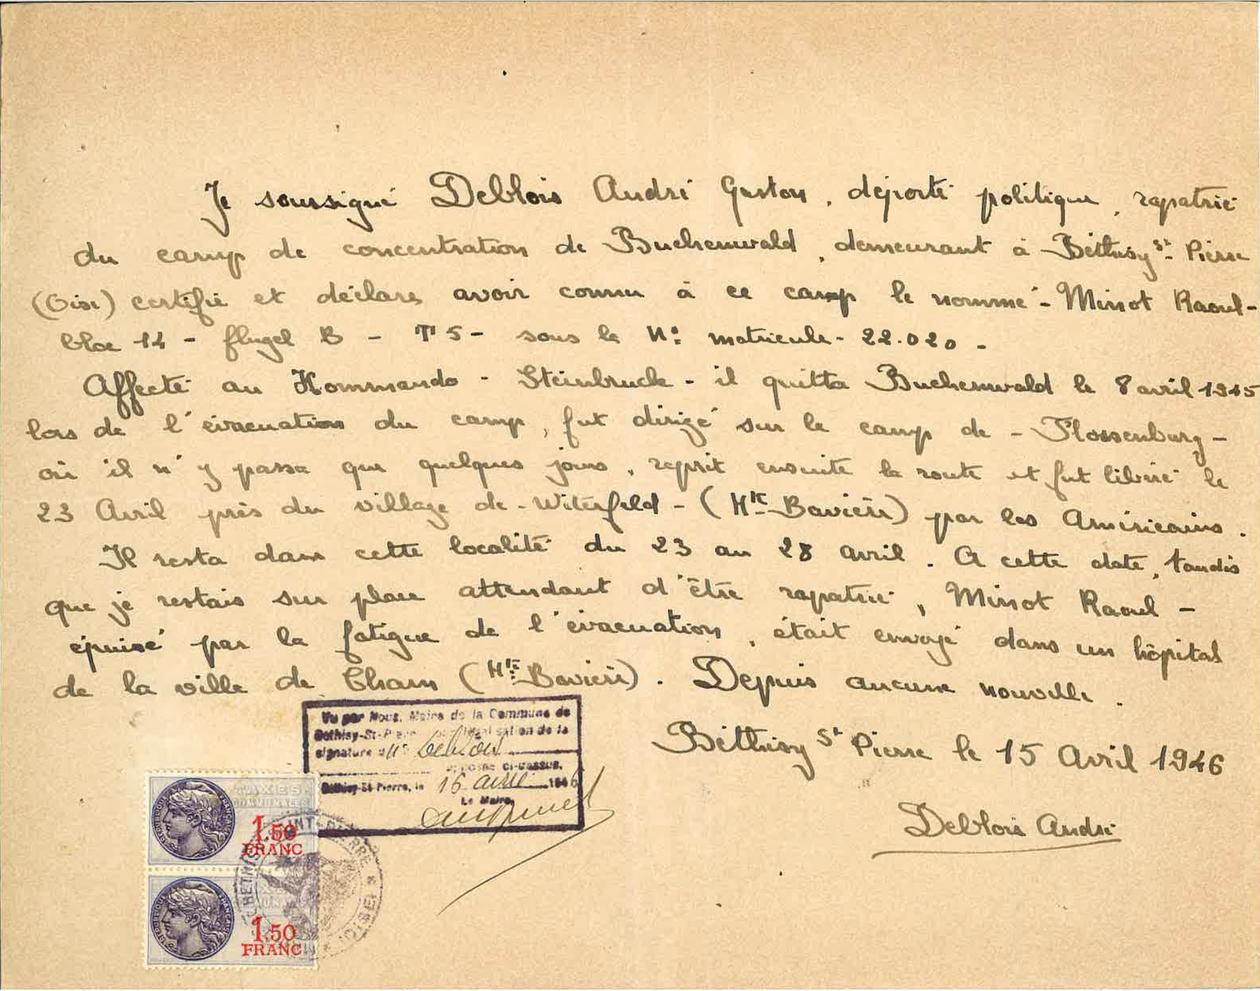 Je soussigné Deblois André Gaston, déporté politique, rapatrié
du camp de concentration de Buchenwald, demeurant à Béthisy St Pierre
(Oise) certifie et déclare avoir connu à ce camp le nommé - Minot Raoul -
bloc 14 - flügel B - T 5 - sous le No: matricule - 22.020 -
Affecté au Kommando - Steinbruck - il quitta Buchenwald le 8 avril 1945
lors de l'évacuation du camp, fut dirigé sur le camp de - Flossenburg -
où il n'y passa que quelques jours, reprit ensuite la route et fut libéré le
23 Avril près du village de - Witerfeld - (Hte Bavière) par les Américains.
Il resta dans cette localité du 23 au 28 avril. A cette date, tandis
que je restais sur place attendant d'être rapatrié, Minot Raoul -
épuisé par la fatigue de l'évacuation, était envoyé dans un hôpital
de la ville de Cham (Hte Bavière). Depuis aucune nouvelle.
Béthisy St Pierre le 15 Avril 1946
Deblois André
Vu par Nous, Maire de la Commune de
Béthisy-St-Pierre légalisation de la
signature de Mr Deblois
apposée ci-dessus.
Béthisy-St-Pierre, le 16 avril 1946
Le Maire,
TAXES
COMMUNALES
1,50
FRANC
1,50
FRANC